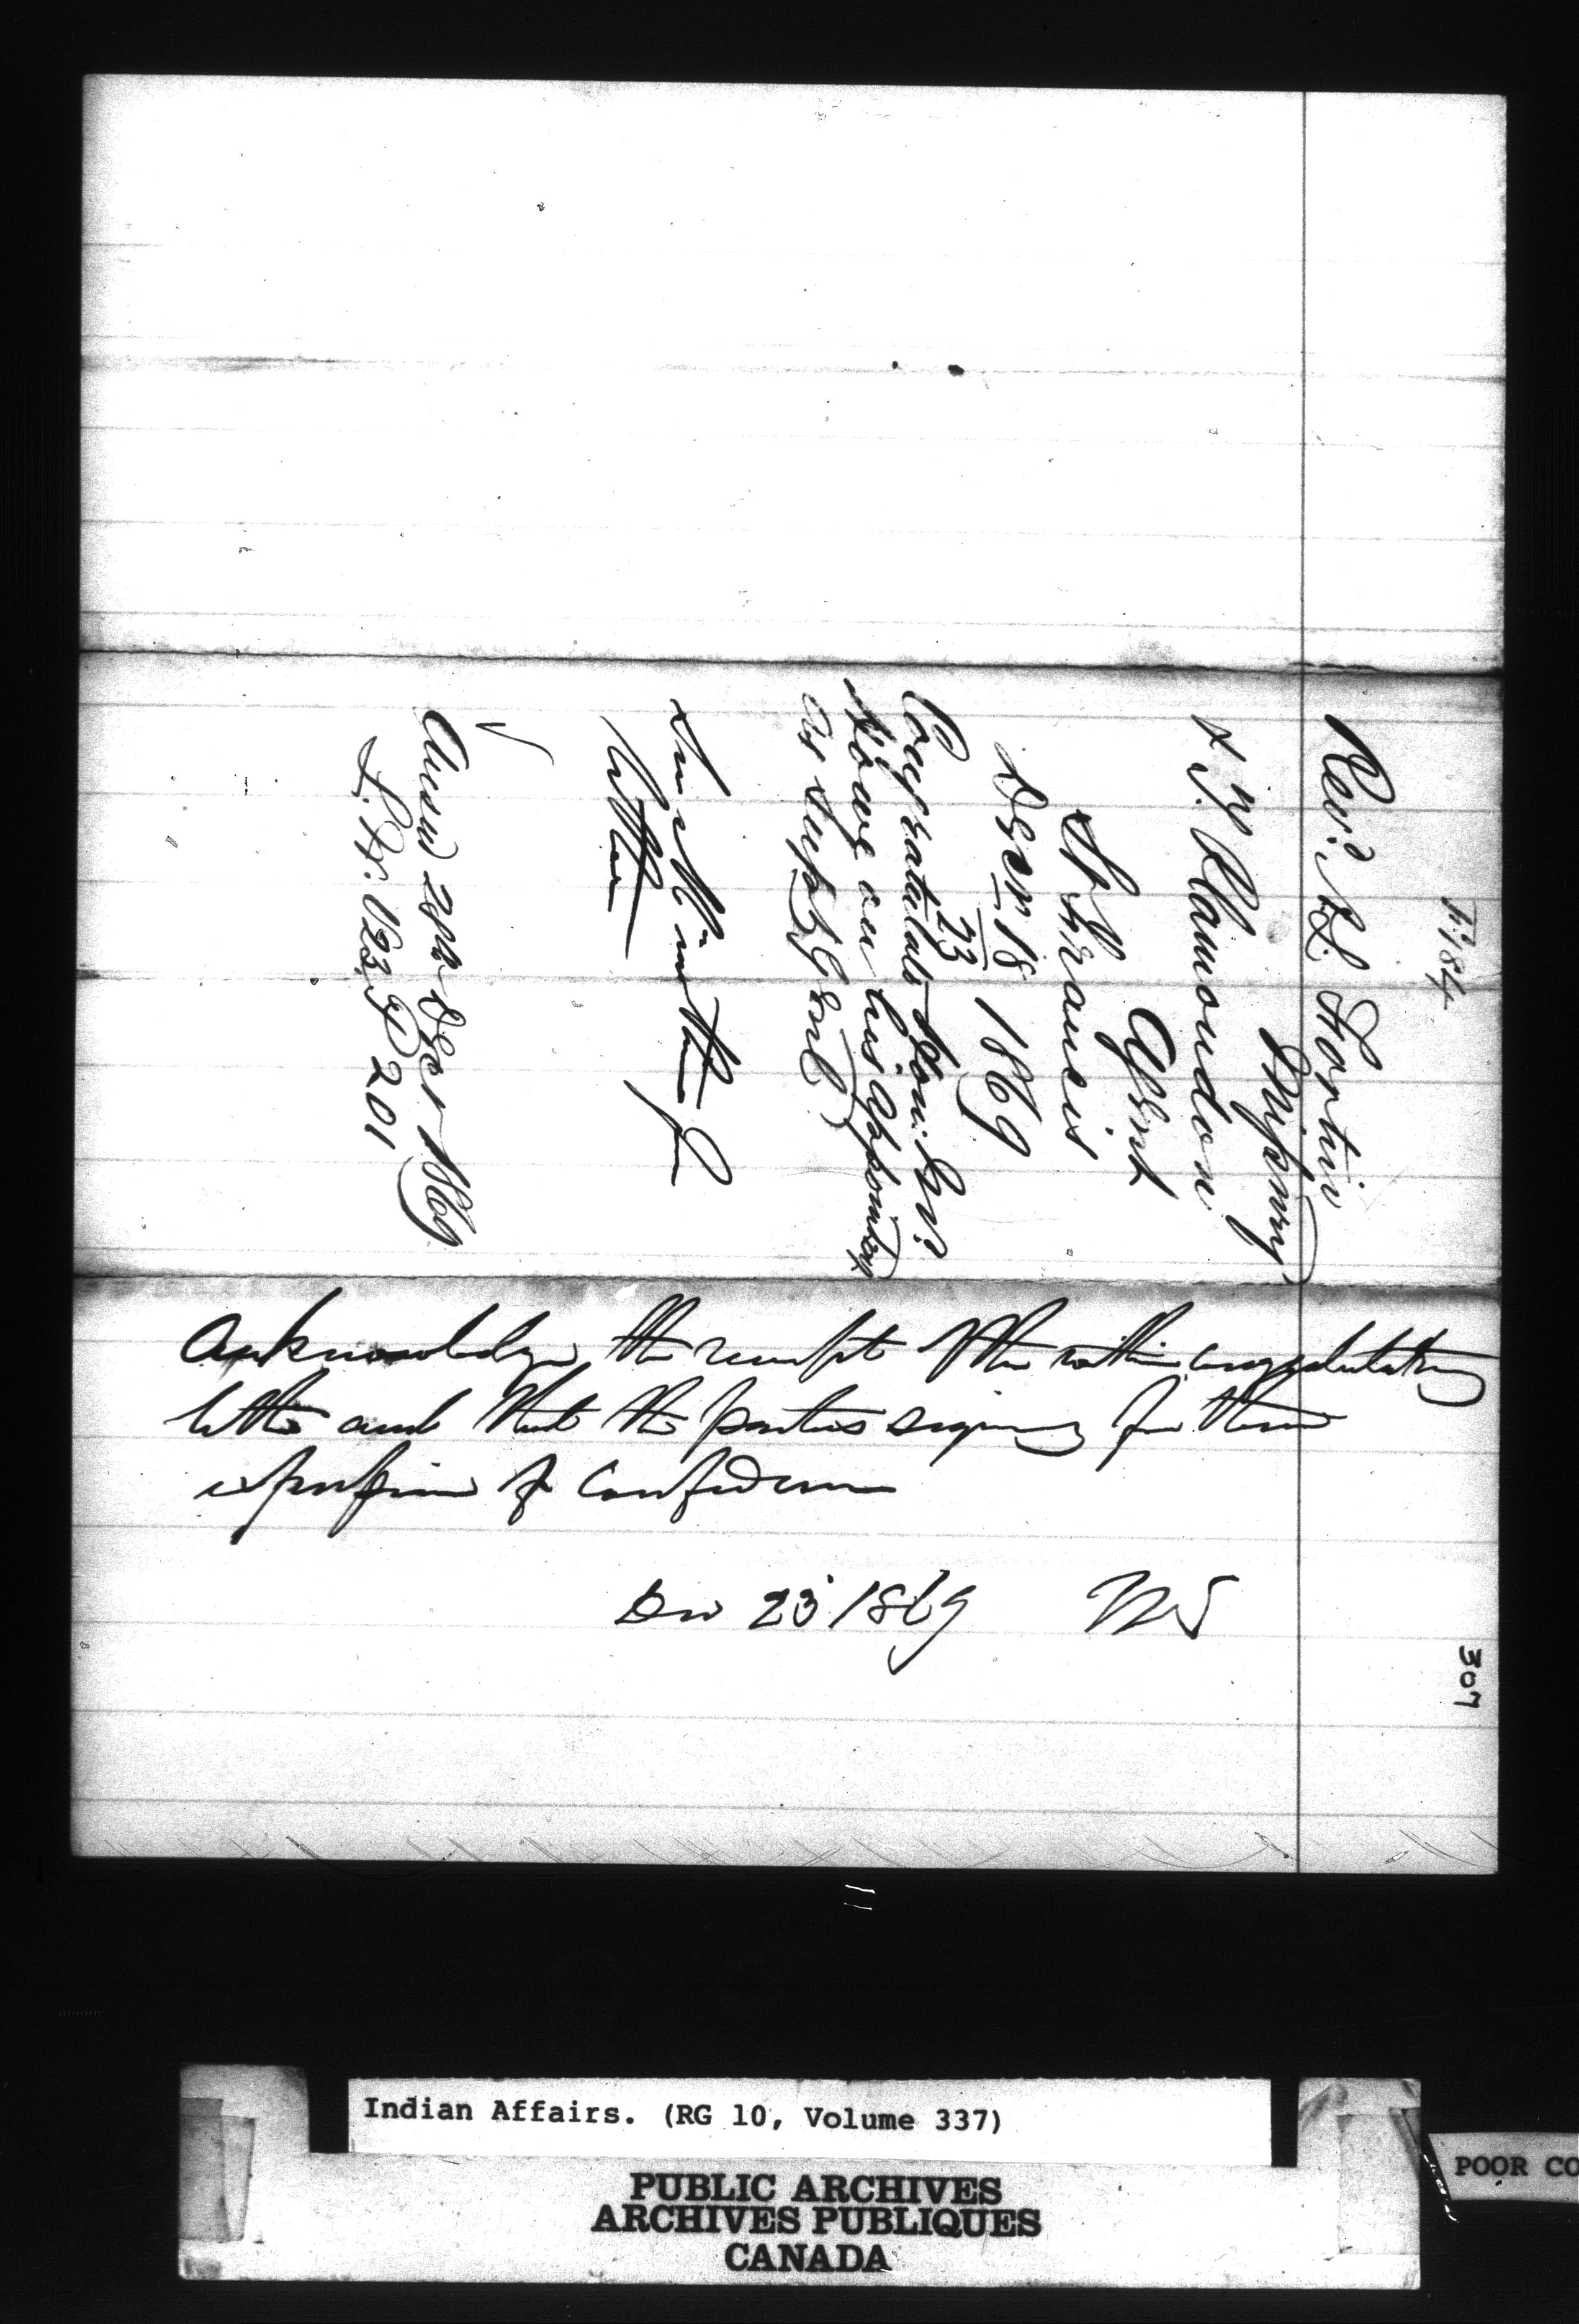 F. 184
Rev.d L. Fortin
Missonry
& W. Plamondon
Agent
St Francis
Decr. 18 1869
23
Congratulate Hon: Mr.
Howe on his Appointmt
as Supt Genl
letter
Answd 28th Decr 1869
L. Bk. V32. P 201
Acknowledge the receipt of the within congratulatory
letter and thank the parties signing for their
expression of Confidence
Dec 23 1869
307
Indian Affairs. (RG 10, Volume 337)
PUBLIC ARCHIVES
ARCHIVES PUBLIQUES
CANADA
POOR CO